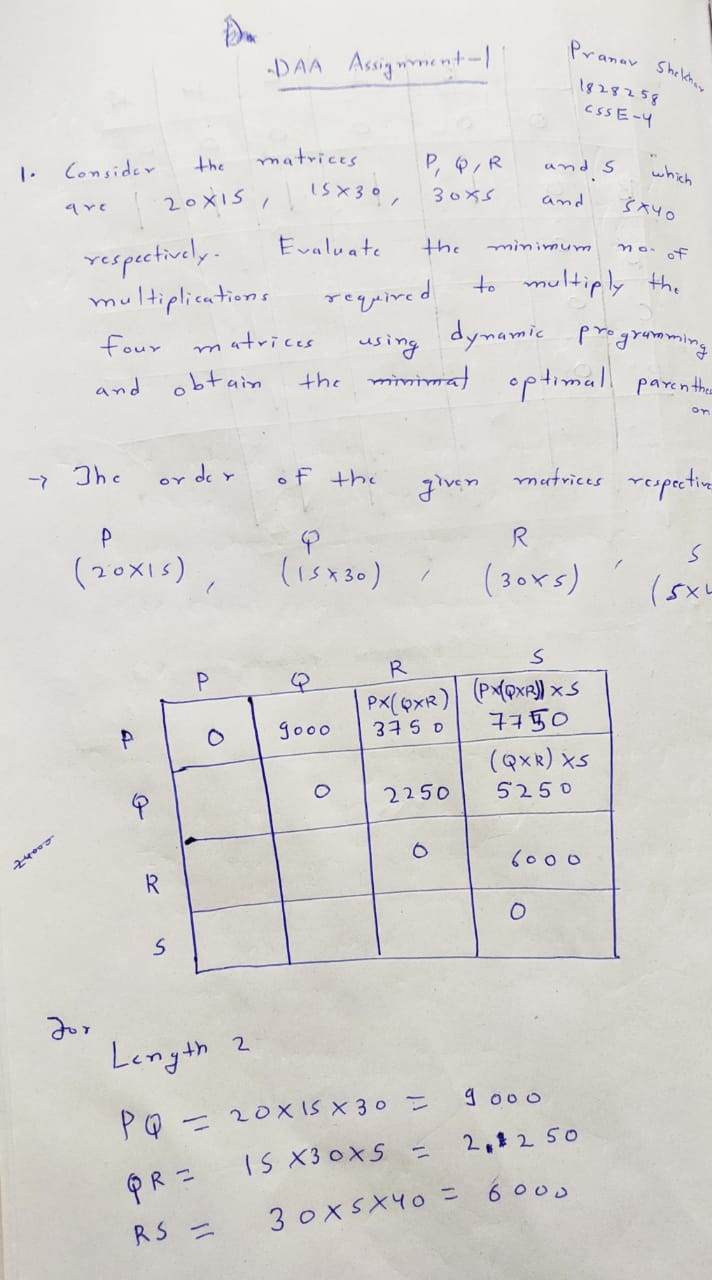 DAA Assignment-1
Pranav Shekhar
1828258
CSSE-4
1. Consider the matrices P, Q, R and S which
are 20X15, 15X30, 30X5 and 5X40
respectively. Evaluate the minimum no. of
multiplications required to multiply the
four matrices using dynamic programming
and obtain the minimal optimal parenthes
on
→ The order of the given matrices respective
P Q R S
(20X15), (15X30), (30X5), (5X4
P Q R S
P 0 9000 PX(QXR) 3750 (PX(QXR)) XS 7750
Q 0 2250 (QXR) XS 5250
R 0 6000
S 0
24000
For
Length 2
PQ = 20X15X30 = 9000
QR = 15X30X5 = 2,250
RS = 30X5X40 = 6000